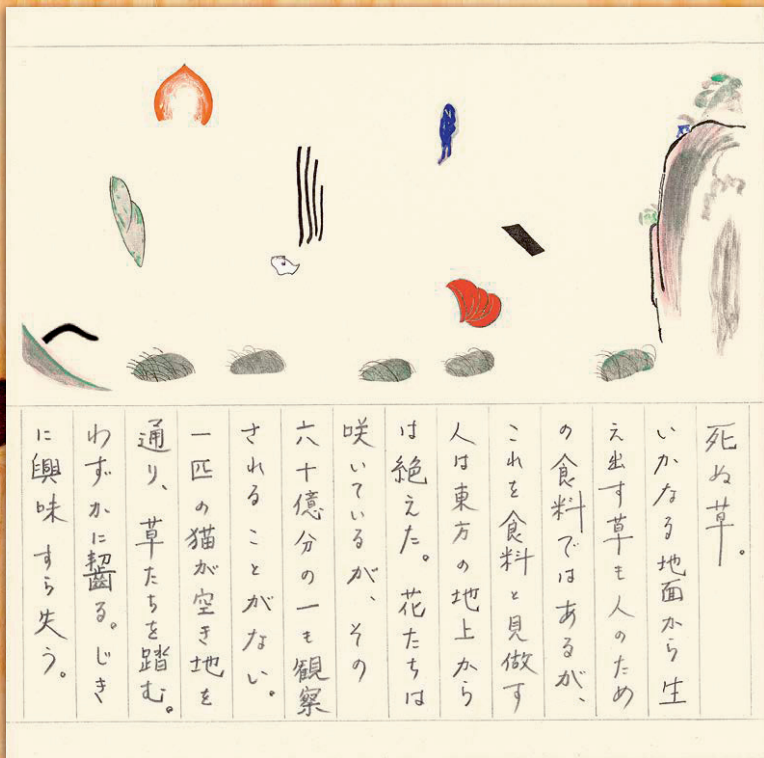 死ぬ草。
いかなる地面から生
え出す草も人のため
の食料ではあるが、
これを食料と見做す
人は東方の地上から
は絶えた。花たちは
咲いているが、その
六十億分の一も観察
されることがない。
一匹の猫が空き地を
通り、草たちを踏む。
わずかに齧る。じき
に興味すら失う。